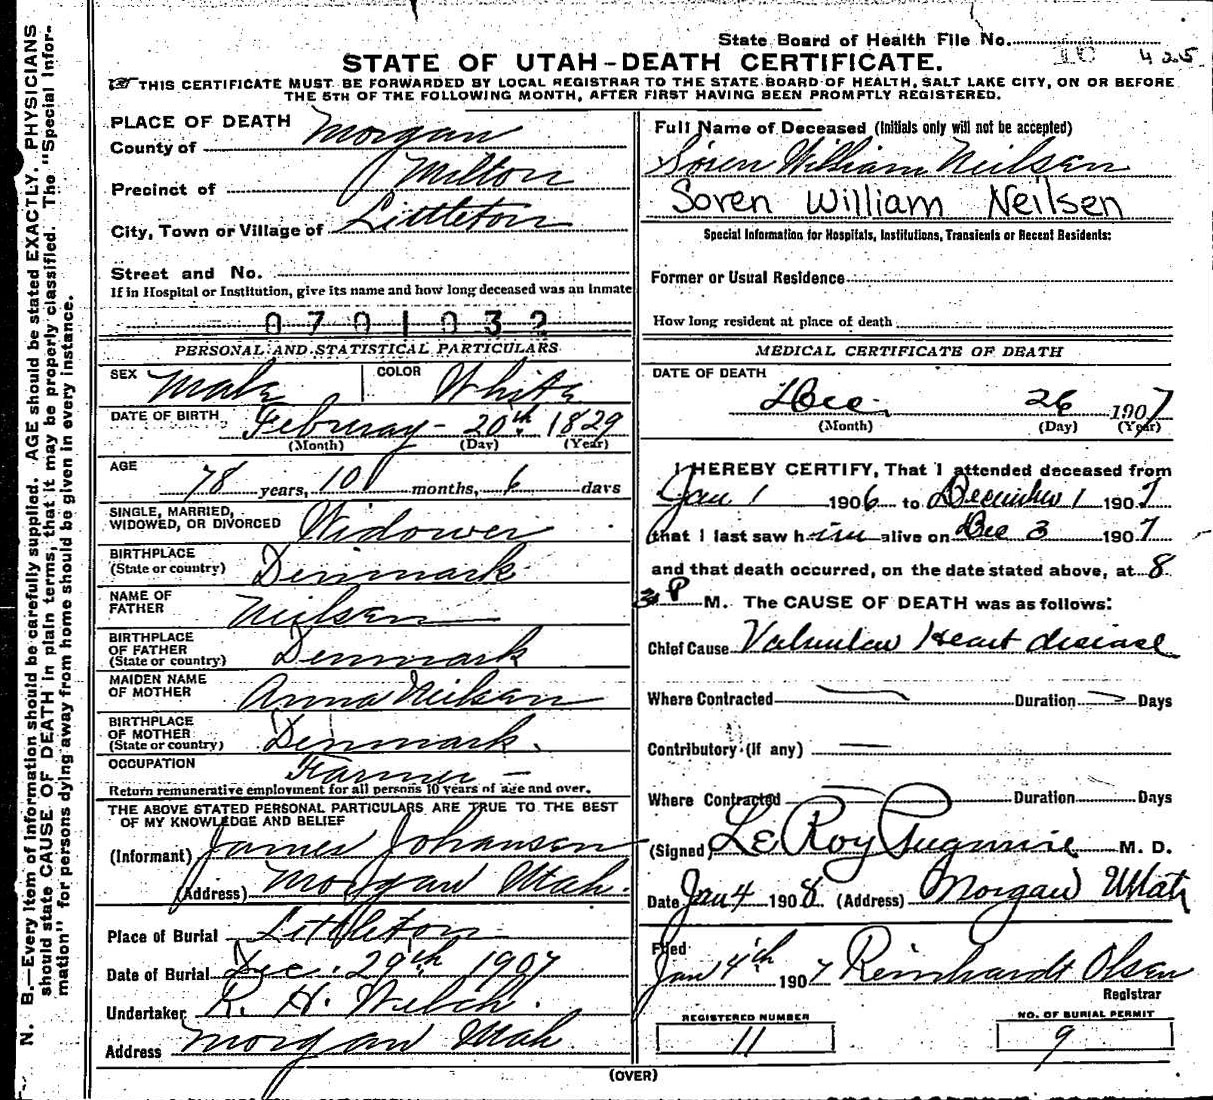 State Board of Health File No. 10 425
STATE OF UTAH-DEATH CERTIFICATE.
☞ THIS CERTIFICATE MUST BE FORWARDED BY LOCAL REGISTRAR TO THE STATE BOARD OF HEALTH, SALT LAKE CITY, ON OR BEFORE
THE 5TH OF THE FOLLOWING MONTH, AFTER FIRST HAVING BEEN PROMPTLY REGISTERED.
N. B.—Every item of information should be carefully supplied. AGE should be stated EXACTLY. PHYSICIANS
should state CAUSE OF DEATH in plain terms, that it may be properly classified. The "Special Infor-
mation" for persons dying away from home should be given in every instance.
PLACE OF DEATH
County of Morgan
Precinct of Milton
City, Town or Village of Littleton
Street and No.
If in Hospital or Institution, give its name and how long deceased was an inmate
0701032
PERSONAL AND STATISTICAL PARTICULARS
SEX Male COLOR White
DATE OF BIRTH Februray - 20th 1829
(Month) (Day) (Year)
AGE
78 years, 10 months, 6 days
SINGLE, MARRIED,
WIDOWED, OR DIVORCED Widower
BIRTHPLACE
(State or country) Denmark
NAME OF
FATHER Nielsen
BIRTHPLACE
OF FATHER
(State or country) Denmark
MAIDEN NAME
OF MOTHER Anna Neilsen
BIRTHPLACE
OF MOTHER
(State or country) Denmark.
OCCUPATION Farmer -
Return remunerative employment for all persons 10 years of age and over.
THE ABOVE STATED PERSONAL PARTICULARS ARE TRUE TO THE BEST
OF MY KNOWLEDGE AND BELIEF
(Informant) James Johansen
(Address) Morgan Utah.
Place of Burial Littleton
Date of Burial Dec. 29th 1907
Undertaker R. H. Welch.
Address Morgan Utah
Full Name of Deceased (Initials only will not be accepted)
Sören William Neilsen
Soren William Neilsen
Special Information for Hospitals, Institutions, Transients or Recent Residents:
Former or Usual Residence
How long resident at place of death
MEDICAL CERTIFICATE OF DEATH
DATE OF DEATH
Dec. 26 1907
(Month) (Day) (Year)
I HEREBY CERTIFY, That I attended deceased from
Jan 1 1906 to December 1 1907
that I last saw him alive on Dec 3 1907
and that death occurred, on the date stated above, at 8
P M. The CAUSE OF DEATH was as follows:
Chief Cause Valvular Heart disease
Where Contracted Duration Days
Contributory (if any)
Where Contracted Duration Days
(Signed) LeRoy Pugmire M. D.
Date Jan 4 1908 (Address) Morgan Utah
Filed
Jan 4th 1907 Reinhardt Olsen
Registrar
REGISTERED NUMBER
11
NO. OF BURIAL PERMIT
9
(OVER)